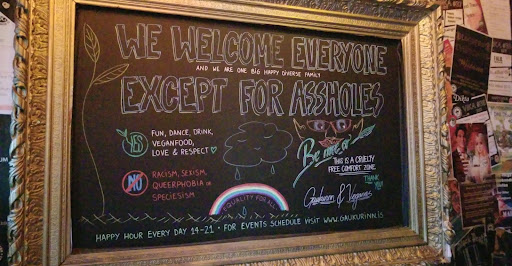 WE WELCOME EVERYONE
AND WE ARE ONE BIG HAPPY DIVERSE FAMILY
EXCEPT FOR ASSHOLES
YES
FUN, DANCE, DRINK,
VEGANFOOD,
LOVE & RESPECT ♡
NO
RACISM, SEXISM,
QUEERPHOBIA OR
SPECIESISM
EQUALITY FOR ALL
Be nice or
THIS IS A CRUELTY
FREE COMFORT ZONE
THANK
YOU
Gaukurinn & Veganæs
HAPPY HOUR EVERY DAY 14-21 · FOR EVENTS SCHEDULE VISIT WWW.GAUKURINN.IS